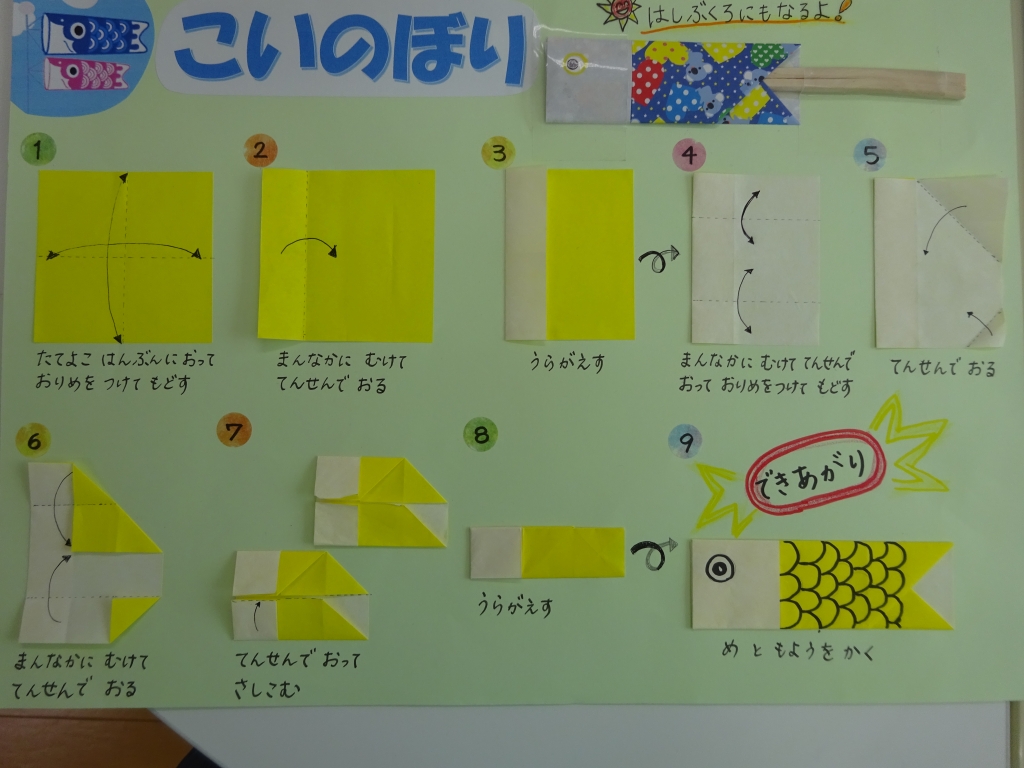 こいのぼり
はしぶくろにもなるよ!
1
たてよこ はんぶんに おって
おりめを つけて もどす
2
まんなかに むけて
てんせんで おる
3
うらがえす
4
まんなかに むけて てんせんで
おって おりめをつけて もどす
5
てんせんで おる
6
まんなかに むけて
てんせんで おる
7
てんせんで おって
さしこむ
8
うらがえす
9
できあがり
め と もようを かく